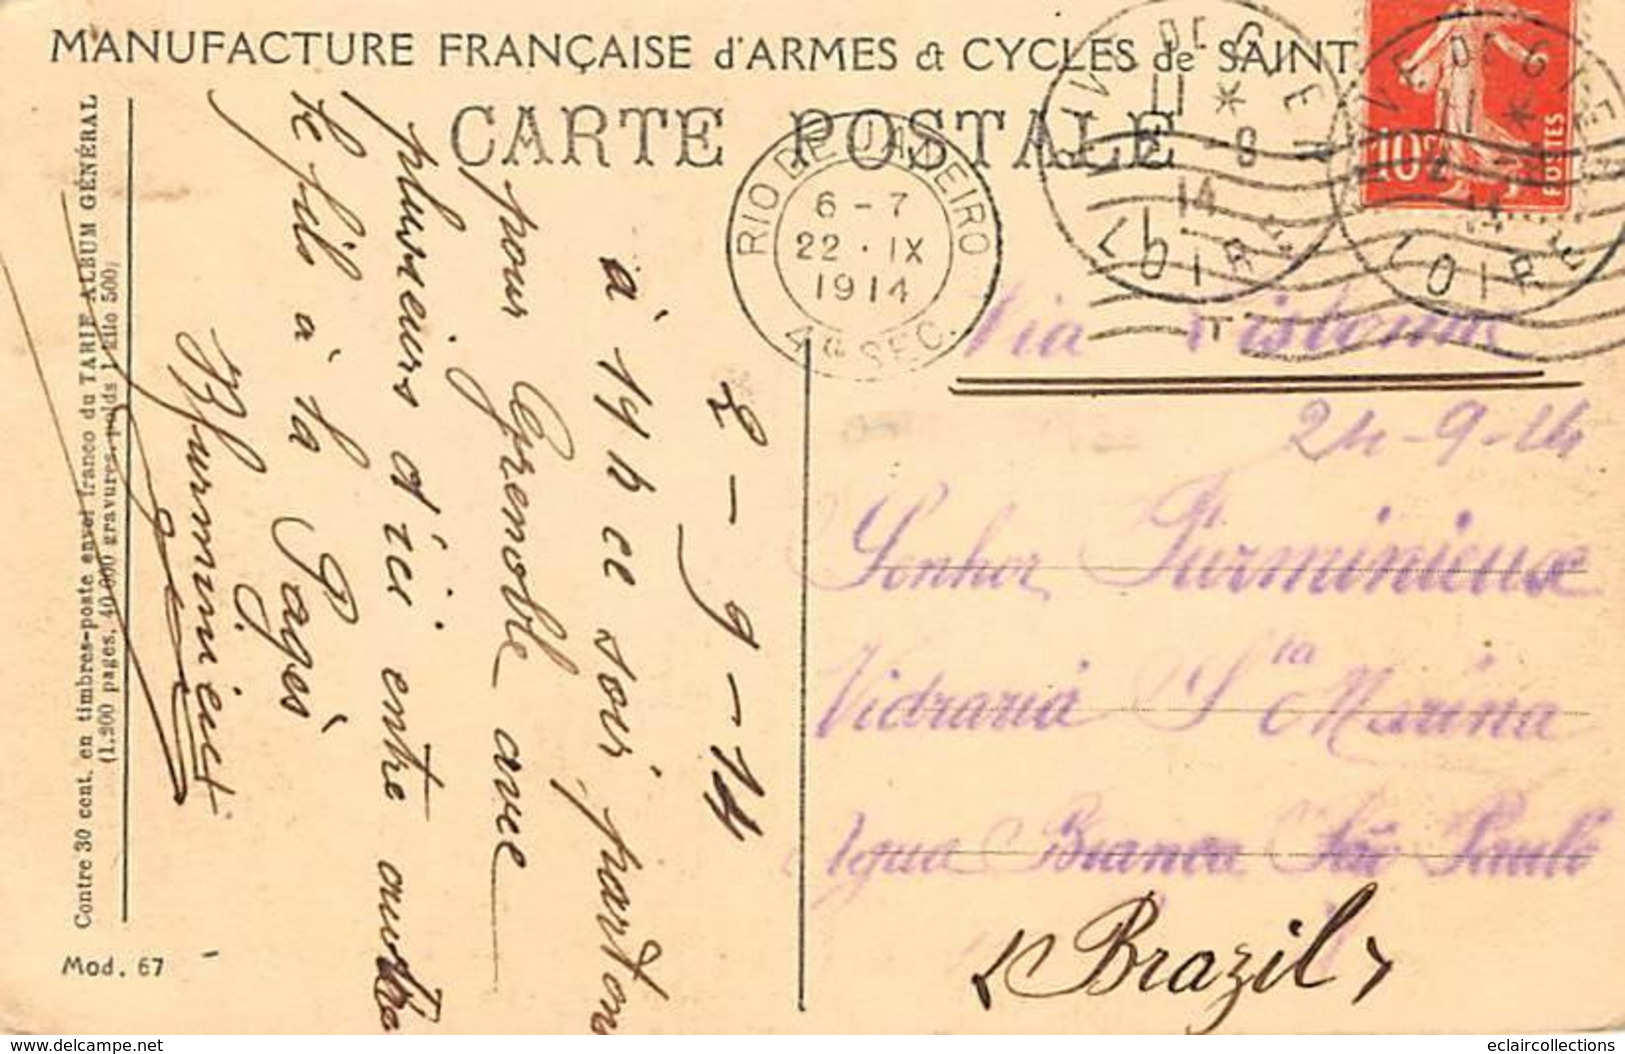 MANUFACTURE FRANÇAISE d'ARMES & CYCLES de SAINT
CARTE POSTALE
RIVE DE GIER
11 * 2 - 9 14
LOIRE
RIVE DE GIER
11 * 2 14
LOIRE
10c
POSTES
RIO DE JANEIRO
6 - 7
22 · IX
1914
4a SEC.
Via Lisbonne
24-9-14
Senhor Furminieux
Vidraria Sta Marina
Agua Branca São Paulo
(Brazil)
2-9-14
à 19 h ce soir parton
pour Grenoble avec
plusieurs d'ici entre autre
le fils à la Pagès
Furminieux
Contre 30 cent. en timbres-poste envoi franco du TARIF ALBUM GÉNÉRAL
(1.200 pages, 40.000 gravures, poids 1 kilo 500)
Mod. 67
delcampe.net
eclaircollections